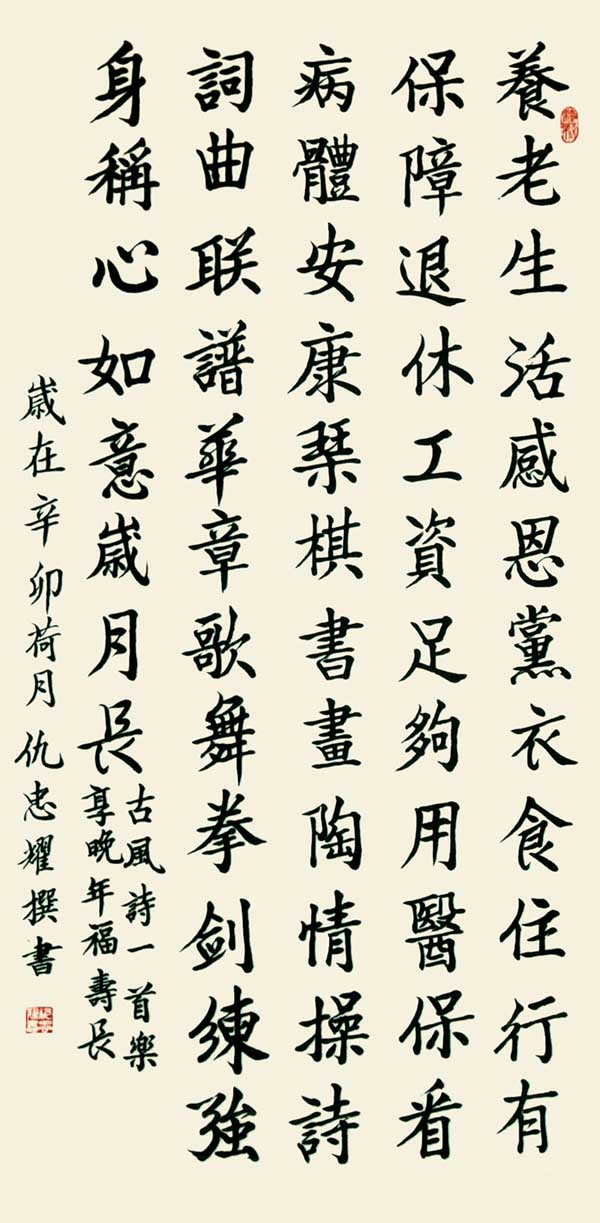 養老生活感恩黨衣食住行有
保障退休工資足夠用醫保看
病體安康琹棋書畫陶情操詩
詞曲联譜華章歌舞拳剑練強
身稱心如意歲月長
古風詩一首樂
享晚年福壽長
歲在辛卯荷月仇忠耀撰書